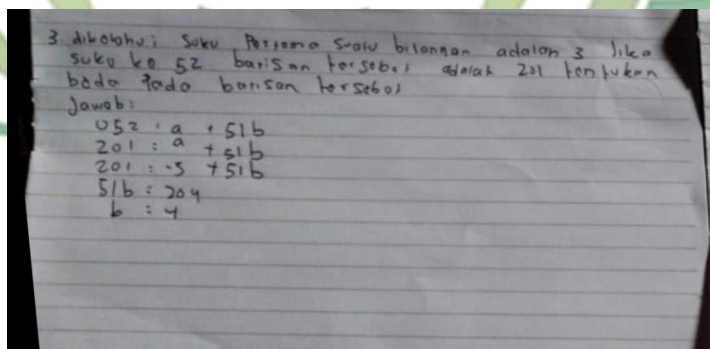 3. diketahui suku Pertama Suatu bilangan adalah 3 Jika
suku ke 52 barisan tersebut adalah 201 tentukan
beda Pada barisan tersebut
Jawab:
U52 : a + 51b
201 : a + 51b
201 : -3 + 51b
51b : 204
b : 4